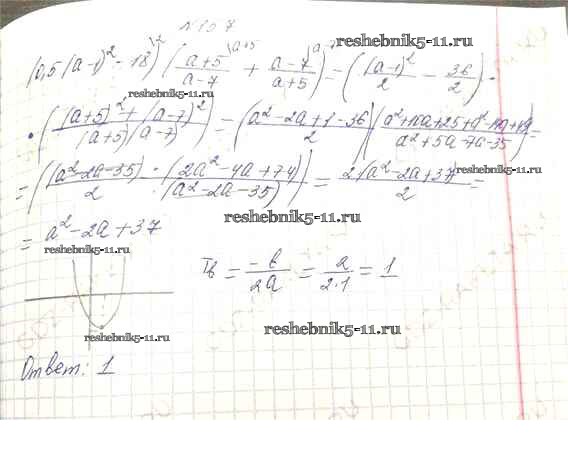 N 107
(0,5(a-1)² - 18) ((a+5)/(a-7) + (a-7)/(a+5)) = ((a-1)²/2 - 36/2) ·
· (((a+5)² + (a-7)²)/((a+5)(a-7))) = ((a²-2a+1-36)/2)((a²+10a+25+a²-14a+49)/(a²+5a-7a-35)) =
= ((a²-2a-35)/2 · (2a²-4a+74)/(a²-2a-35)) = 2(a²-2a+37)/2 =
= a²-2a+37
x в = -b/2a = 2/2·1 = 1
Ответ: 1
reshebnik5-11.ru
reshebnik5-11.ru
reshebnik5-11.ru
reshebnik5-11.ru
reshebnik5-11.ru
reshebnik5-11.ru
reshebnik5-11.ru